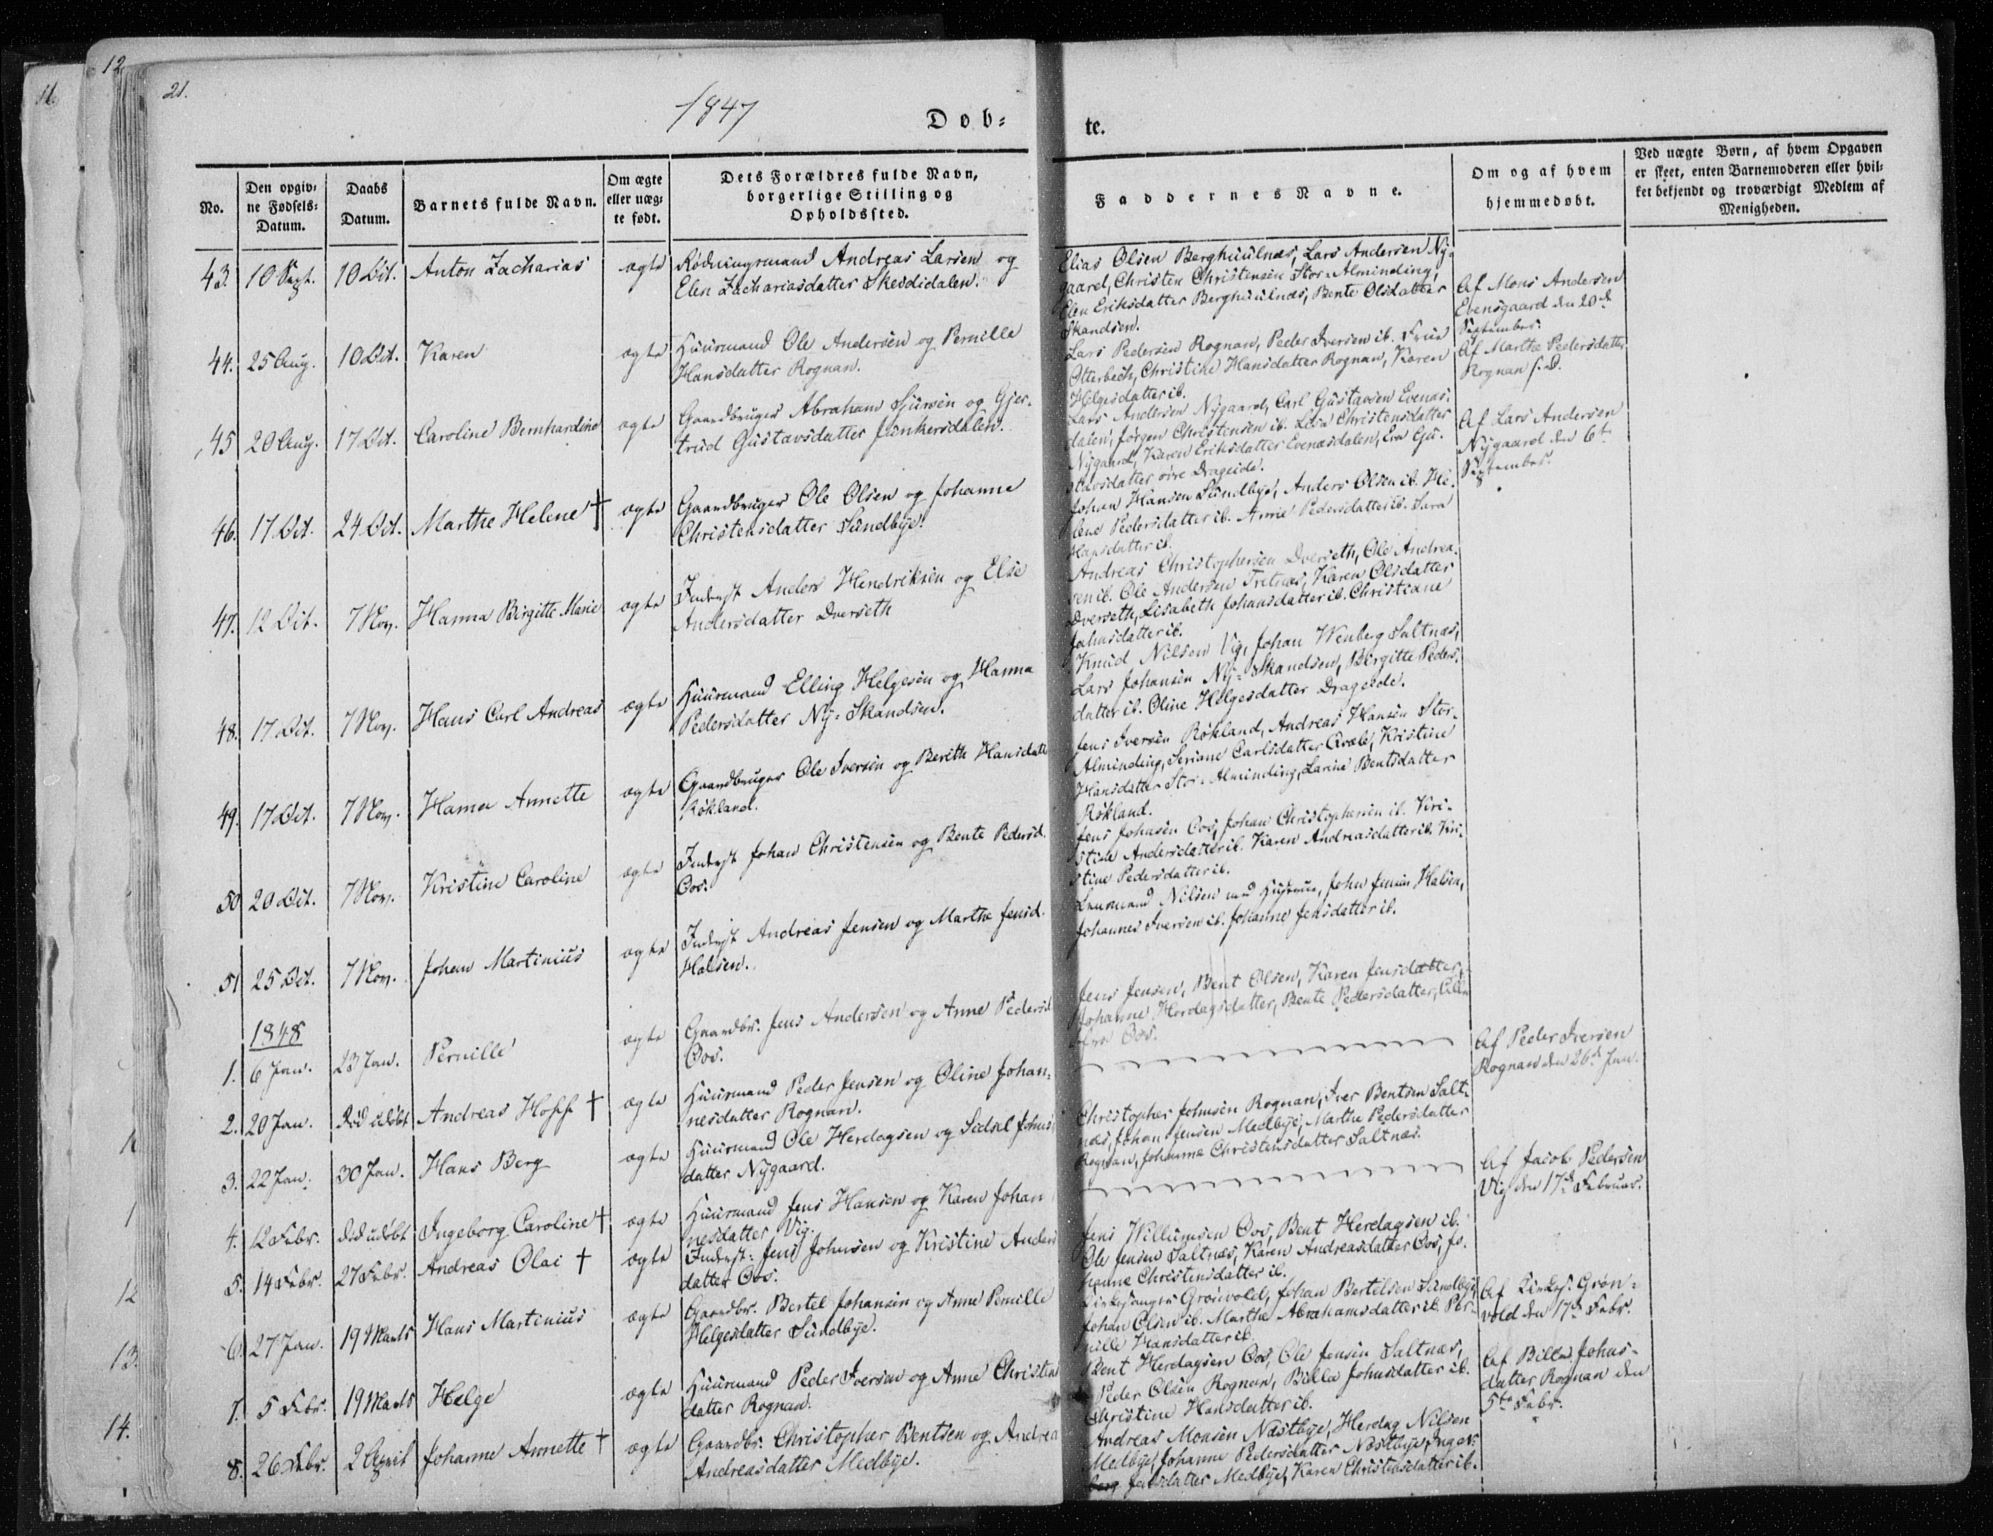 11.
12
21.
1847
Døb-
te.
No.
Den opgiv-
ne Fødsels-
Datum.
Daabs
Datum.
Barnets fulde Navn.
Om ægte
eller uæg-
te født.
Dets Forældres fulde Navn,
borgerlige Stilling og
Opholdssted.
Faddernes Navne.
Om og af hvem
hjemmedøbt.
Ved uægte Børn, af hvem Opgaven
er skeet, enten Barnemoderen eller hvil-
ket bekjendt og troværdigt Medlem af
Menigheden.
43. 10 Sept. 10 Oct. Anton Zacharias ægte Rødningsmand Andreas Larsen og
Elen Zachariasdatter Skeddidalen.
Elias Olsen Berghuulnæs, Lars Andersen Ny-
gaard, Christen Christensen Stor-Alminding,
Elen Eriksdatter Berghuulnæs, Bente Olsdatter
Skandsen.
Af Mons Andersen
Evensgaard den 20de
September.
44. 25 Aug. 10 Oct. Karen ægte Huusmand Ole Andersen og Pernille
Hansdatter Rognan.
Lars Pedersen Rognan, Peder Iversen ib. Frue
Otterbech, Christine Hansdatter Rognan, Karen
Helgesdatter ib.
Af Marthe Pedersdatter
Rognan s. D.
45 20 Aug. 17 Oct. Caroline Bernhardine ægte Gaardbruger Abraham Sjursen og Gjer-
trud Gustavsdatter Junkersdalen.
Lars Andersen Nygaard, Carl Gustavsen Evenæs-
dalen, Jørgen Christensen ib. Lisa Christensdatter
Nygaard, Karen Eriksdatter Evenæsdalen, Eva Gu-
stavsdatter øvre Drageide.
Af Lars Andersen
Nygaard den 6te
September.
46. 17 Oct. 24 Oct. Marthe Helene † ægte Gaardbruger Ole Olsen og Johanne
Christensdatter Sundbye.
Johan Hansen Sundbye, Anders Olsen ib. He-
lene Pedersdatter ib. Anne Pedersdatter ib. Sara
Hansdatter ib.
47. 12 Oct. 7 Nov. Hanna Birgitte Marie ægte Inderst Anders Hendriksen og Else
Andersdatter Dverseth
Andreas Christophersen Dverseth, Ole Andrea-
sen ib. Ole Andersen Tretnæs, Karen Olsdatter
Dverseth, Lisabeth Johansdatter ib. Christiane
Johnsdatter ib.
48. 17 Oct. 7 Nov. Hans Carl Andreas ægte Huusmand Elling Helgesen og Hanna
Pedersdatter Ny-Skandsen.
Knud Nilsen Vig, Johan Wenberg Saltnæs,
Lars Johansen Ny-Skandsen, Birgitte Peders-
datter ib. Oline Helgesdatter Drageide.
49. 17 Oct. 7 Nov. Hanna Annette ægte Gaardbruger Ole Iversen og Berith Hansdatt.
Røkland.
Jens Iversen Røkland, Andreas Hansen Stor-
Alminding, Seriane Carlsdatter Qvæle, Kristine
Hansdatter Stor-Alminding, Larine Bentsdatter
Røkland.
50 20 Oct. 7 Nov. Kristine Caroline ægte Inderst Johan Christensen og Bente Pedersd.
Oos.
Jens Johnsen Oos, Johan Christophersen ib. Kri-
stine Andersdatter ib. Karen Andreasdatter ib. Kri-
stine Pedersdatter ib.
51 25 Oct. 7 Nov. Johan Martinius ægte Inderst Andreas Jensen og Marthe Jensd.
Halsen.
Lensmand Nilsen med Hustrue, John Jensen Halsen,
Johannes Iversen ib. Johanne Jensdatter ib.
1848
1. 6 Jan. 23 Jan. Pernille ægte Gaardbr. Jens Andersen og Anne Pedersd.
Oos.
Jens Jensen, Bent Olsen, Karen Jensdatter,
Johanne Herdagsdatter, Bente Pedersdatter, alle
fra Oos.
2. 20 Jan. død udøbt Andreas Hopp † ægte Huusmand Peder Jensen og Oline Johan-
nesdatter Rognan.
Af Peder Iversen
Rognan den 26de Jan.
3. 22 Jan. 30 Jan. Hans Berg ægte Huusmand Ole Herdagsen og Sidsel Johns-
datter Nygaard.
Christopher Johnsen Rognan, Iver Bentsen Salt-
næs, Johan Jensen Medbye, Marthe Pedersdatter
Rognan, Johanne Christensdatter Saltnæs.
4. 12 Febr. død udøbt Ingeborg Caroline † ægte Huusmand Jens Hansen og Karen Johan-
nesdatter Vig.
Af Jacob Pedersen
Vig den 17de Februar.
5. 14 Febr. 27 Febr. Andreas Olai † ægte Inderst Jens Johnsen og Kristine Anders-
datter Oos.
Jens Willumsen Oos, Bent Herdagsen ib.
Ole Jensen Saltnæs, Karen Andreasdatter Oos, Jo-
hanne Christensdatter ib.
6. 27 Jan. 19 Marts Hans Martinius ægte Gaardbr. Bertel Johansen og Anne Pernille
Helgesdatter Sundbye.
Kirkesanger Grønvold, Johan Bertelsen Sundbye,
Johan Olsen ib. Marthe Abrahamsdatter ib. Per-
nille Hansdatter ib.
Af Kirkes. Grøn-
vold den 17de Febr.
7. 5 Febr. 19 Marts Helge ægte Huusmand Peder Iversen og Anne Christens
datter Rognan.
Bent Herdagsen Oos, Ole Jensen Saltnæs,
Peder Olsen Rognan, Billa Johnsdatter ib.
Christine Hansdatter ib.
Af Billa Johns-
datter Rognan den
5te Febr.
8. 26 Febr. 2 April Johanne Annette † ægte Gaardbr. Christopher Bentsen og Andrea
Andreasdatter Medbye.
Andreas Monsen Næstbye, Herdag Nilsen
Medbye, Johanne Pedersdatter Næstbye, Inge-
borg Jensdatter Medbye, Karen Christensdatter ib.
12
13.
14.